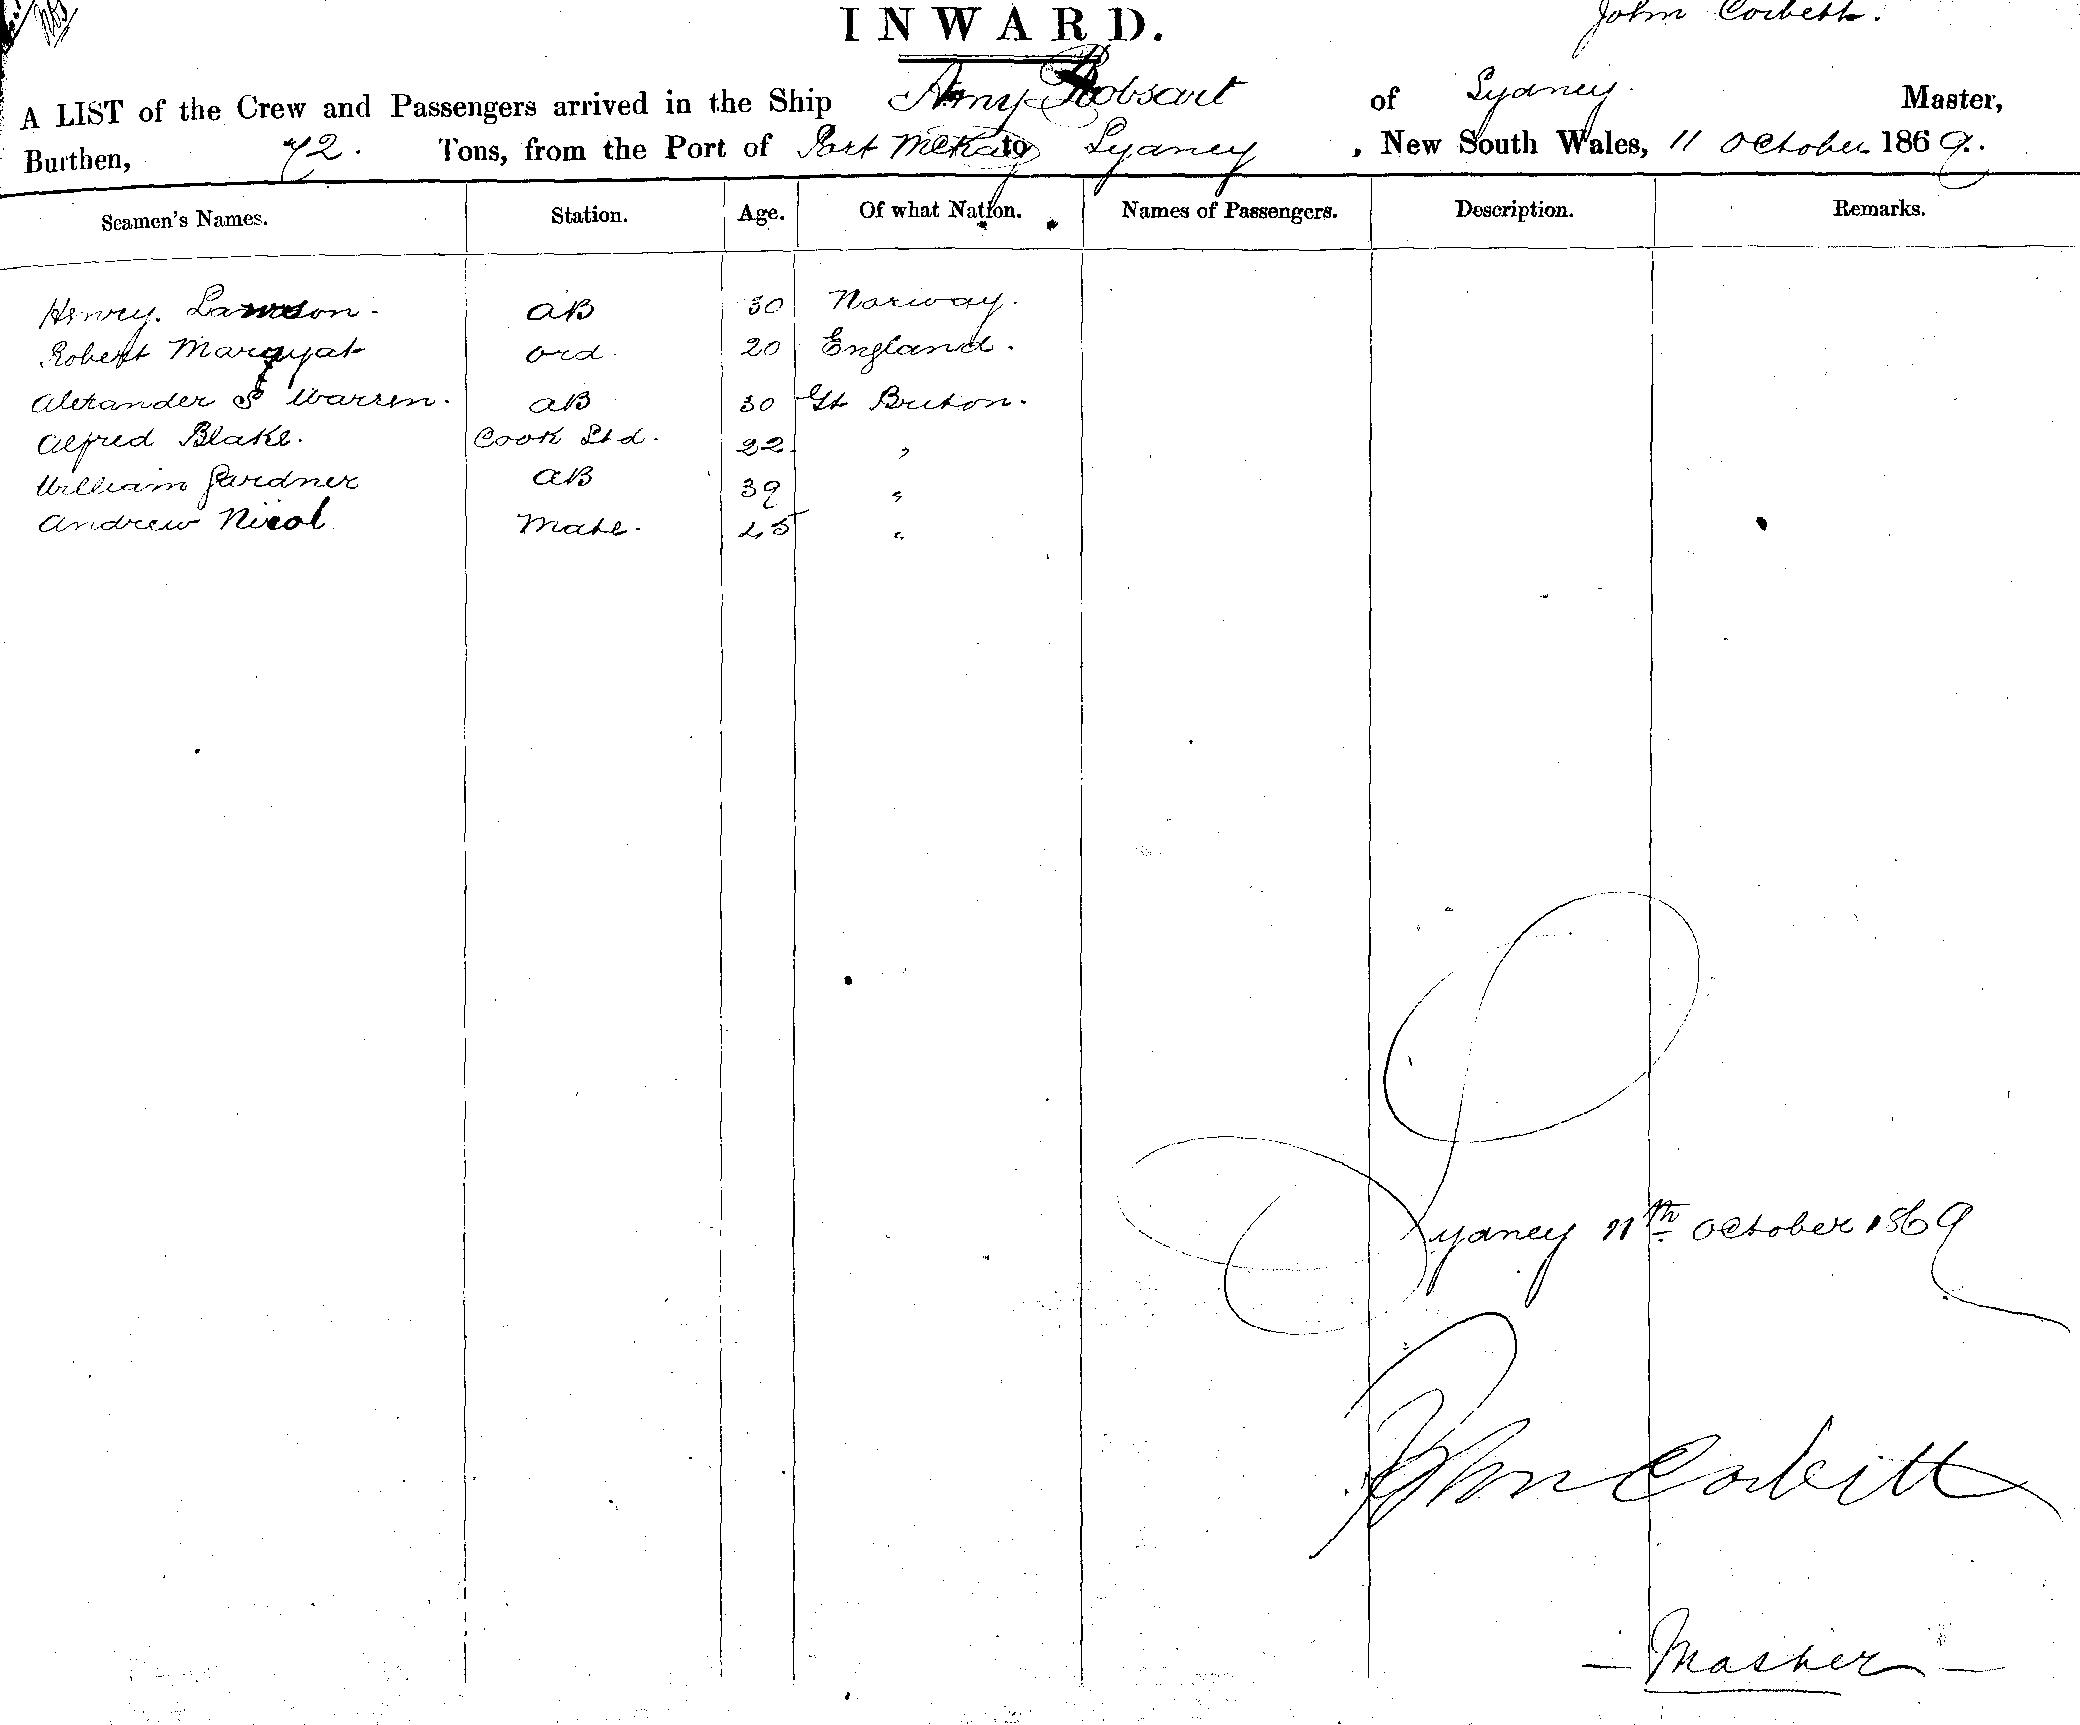 INWARD.
John Corbett.
A LIST of the Crew and Passengers arrived in the Ship Amy Robsart of Sydney. Master,
Burthen, 72. Tons, from the Port of Port McKay to Sydney, New South Wales, 11 October 1869.
Seamen's Names. Station. Age. Of what Nation. Names of Passengers. Description. Remarks.
Henry. Lawson. AB 30 Norway.
Robert Marryat ord. 20 England.
Alexander S Warren. AB 30 Gt Briton.
Alfred Blake. Cook Std. 22 "
William Gardner AB 39 "
Andrew Nicol Mate. 45 "
Sydney 11th October 1869
John Corbitt
- Master -